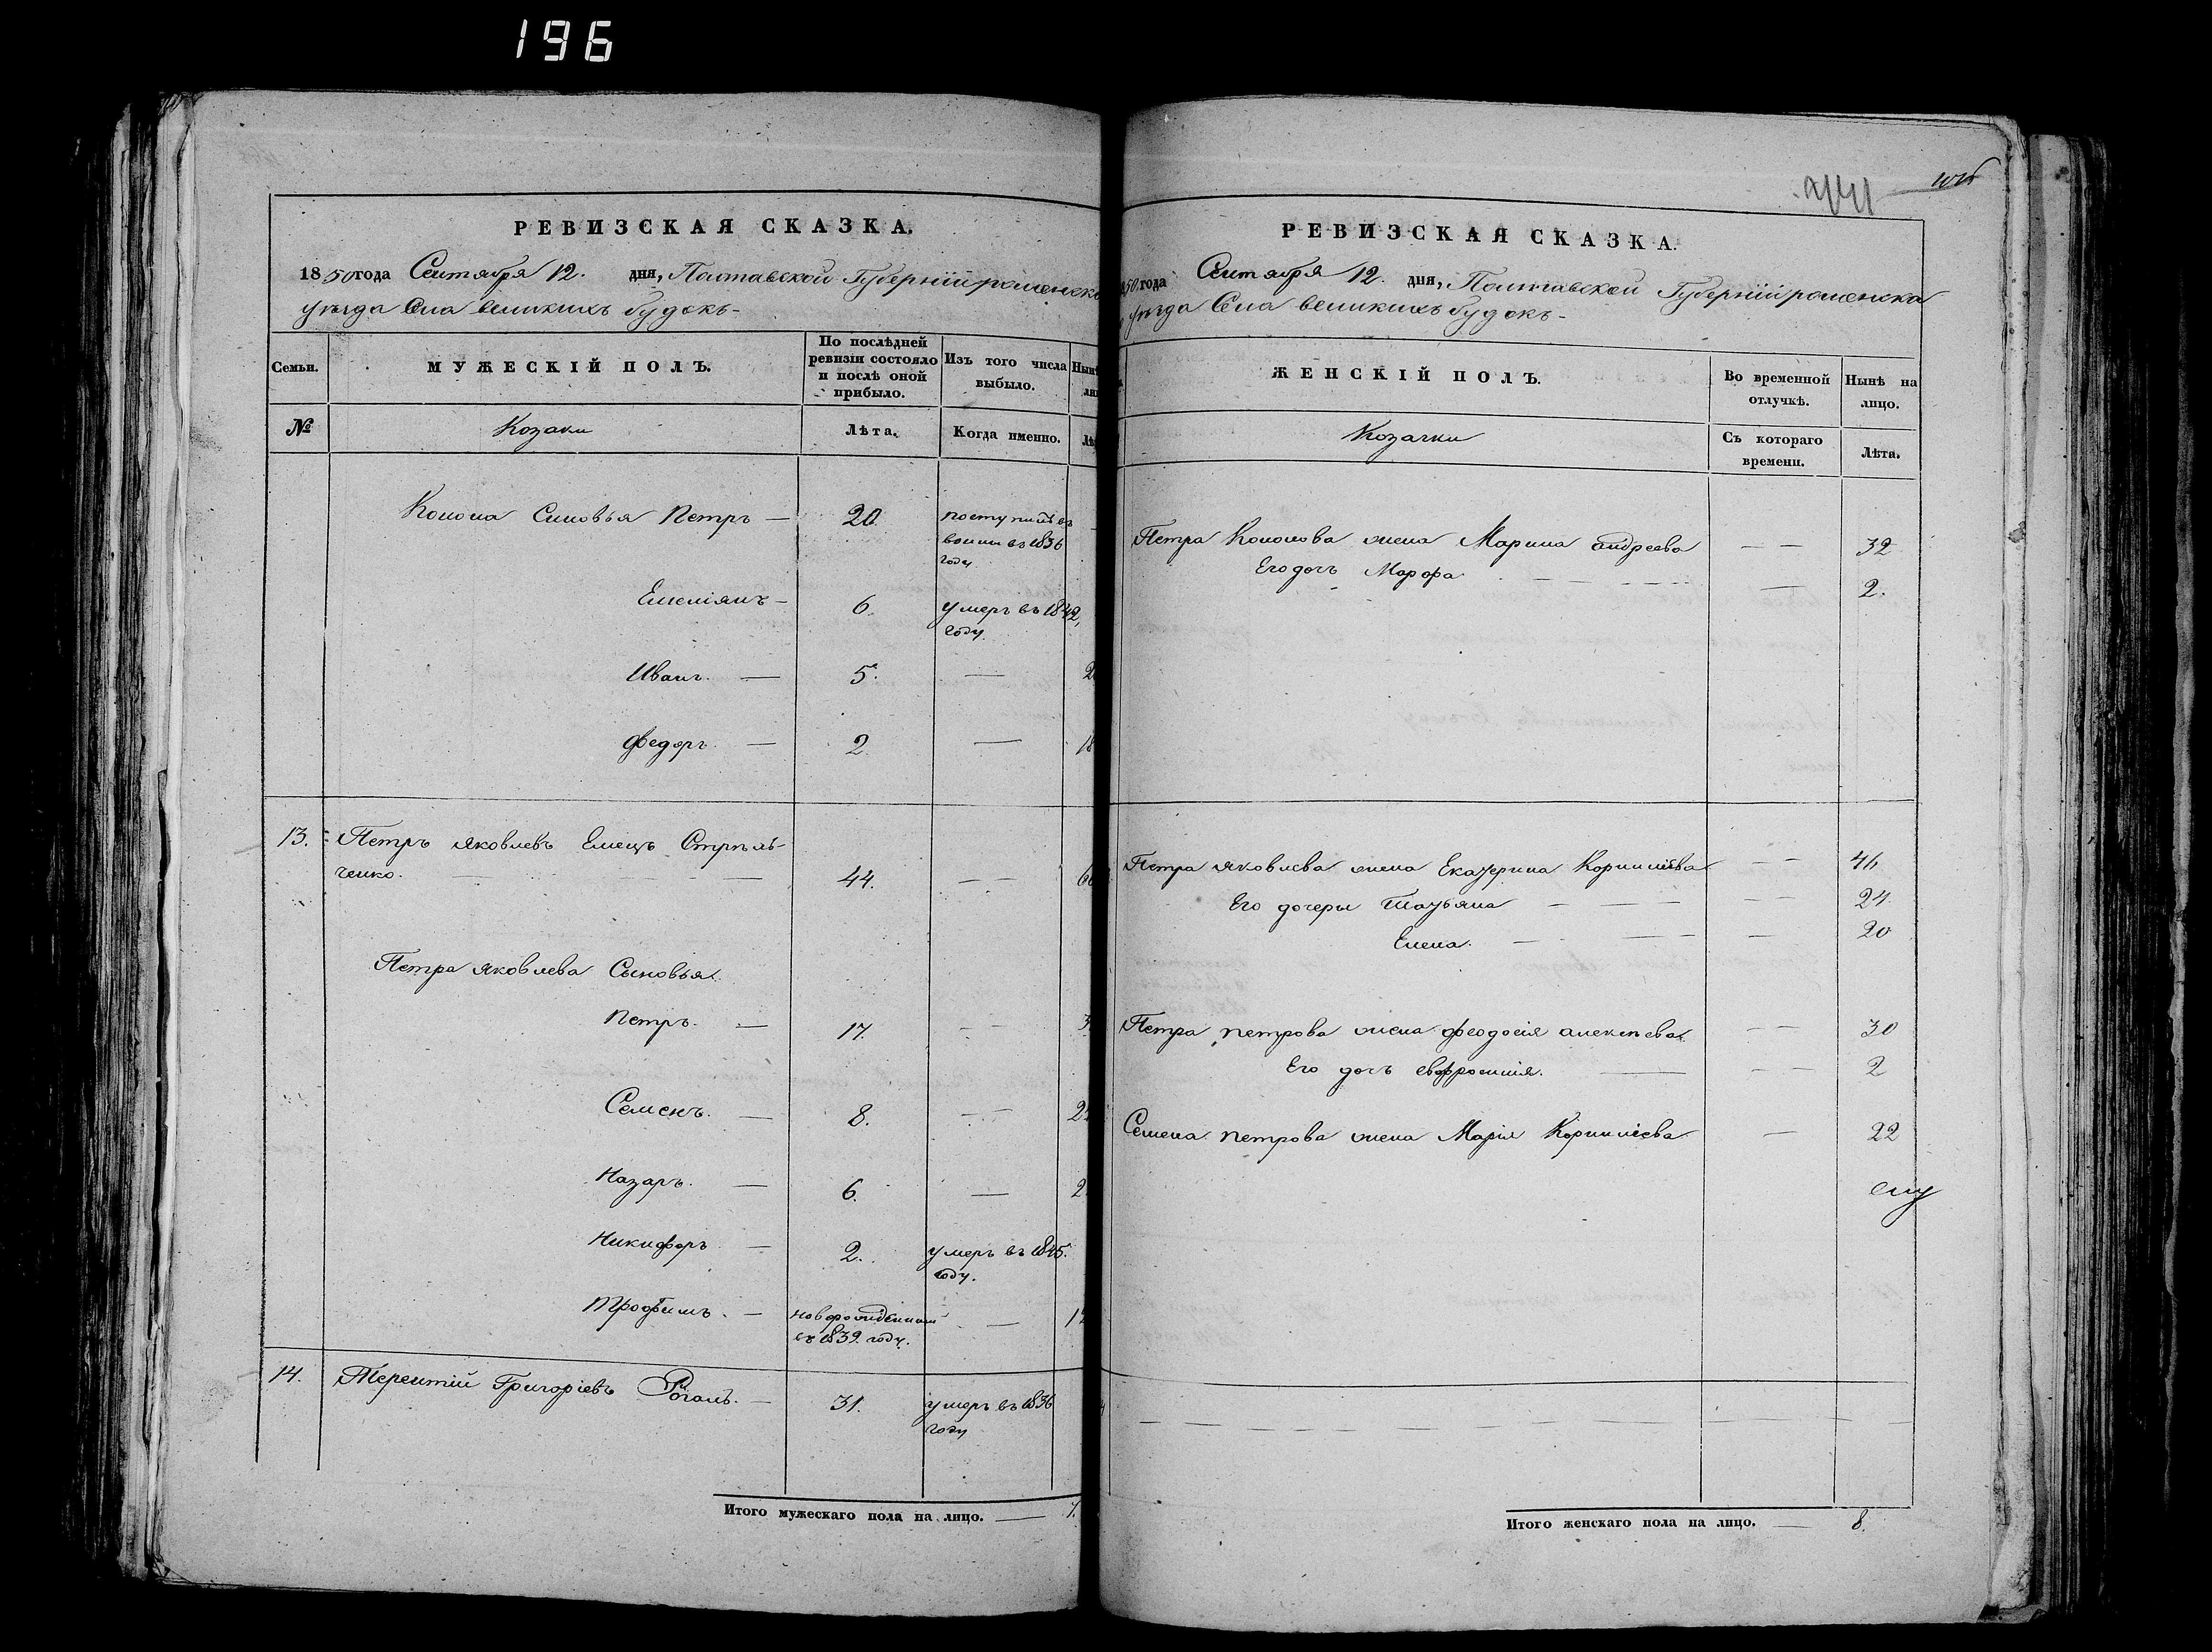 196
РЕВИЗСКАЯ СКАЗКА.
1850 года Сентября 12. дня, Полтавской Губерніи роменско
уѣзда Села великихъ будокъ-
Семьи.
МУЖЕСКІЙ ПОЛЪ.
По послѣдней ревизіи состояло и послѣ оной прибыло.
Изъ того числа выбыло.
№
Козаки
Лѣта.
Когда именно.
Конона Сыновья Петръ — 20. поступилъ въ
воины въ 1836
году
Емеліянъ — 6. умеръ въ 1842,
году.
Иванъ. — 5. —
Федоръ. — 2. — 18
13. Петръ Яковлевъ Емецъ Стрѣль-
ченко. — 44. —
Петра Яковлева Сыновья.
Петръ. — 17. —
Семенъ. — 8. —
Назаръ. — 6. —
Никифоръ — 2. умеръ въ 1845.
году.
Трофимъ. — новорожденный —
въ 1839. году.
14. Терентій Григоріевъ Роганъ. — 31. умеръ въ 1836
году
Итого мужескаго пола на лицо. — 7.
РЕВИЗСКАЯ СКАЗКА.
50 года Сентября 12. дня, Полтавской Губерніи роменска
уѣзда Села великихъ будокъ-
ЖЕНСКІЙ ПОЛЪ.
Во временной отлучкѣ.
Нынѣ на лицо.
Козачки
Съ котораго времени.
Лѣта.
Петра Кононова жена Марина андреева — — 32
Его дочь Марфа — — 2.
Петра Яковлева жена Екатерина Корниліева — — 46
Его дочери Татьяна — — 24.
Елена. — — 20
Петра петрова жена феодосія алексѣева. — — 30
Его дочь евфросинія. — — 2
Семена петрова жена Марія Корниліева. — 22
Итого женскаго пола на лицо. — 8.